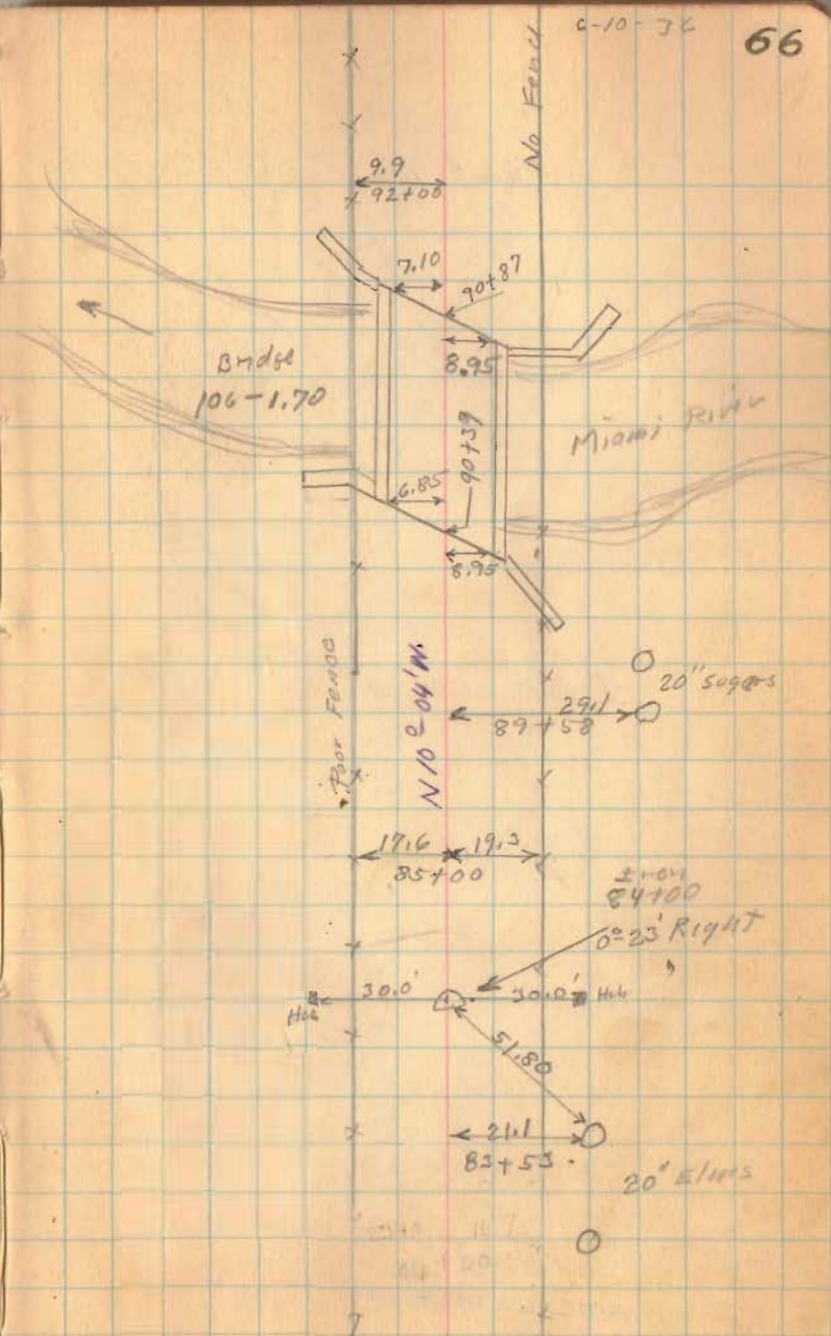 6-10-36
66
No Fence
9.9
92+00
7.10
90+87
8.95
Bridge
106-1.70
90+39
Miami River
6.85
8.95
Poor Fence
N 10° 04' W.
20" Sugars
29.1
89+58
17.6
19.3
85+00
Iron
84+00
0°23' Right
30.0'
30.0'
Hub
Hub
51.80
21.1
83+53.
20" Elms